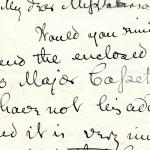 My dear Miss
Would you
end the enclosed
Major
have not his ad
nd it is very im